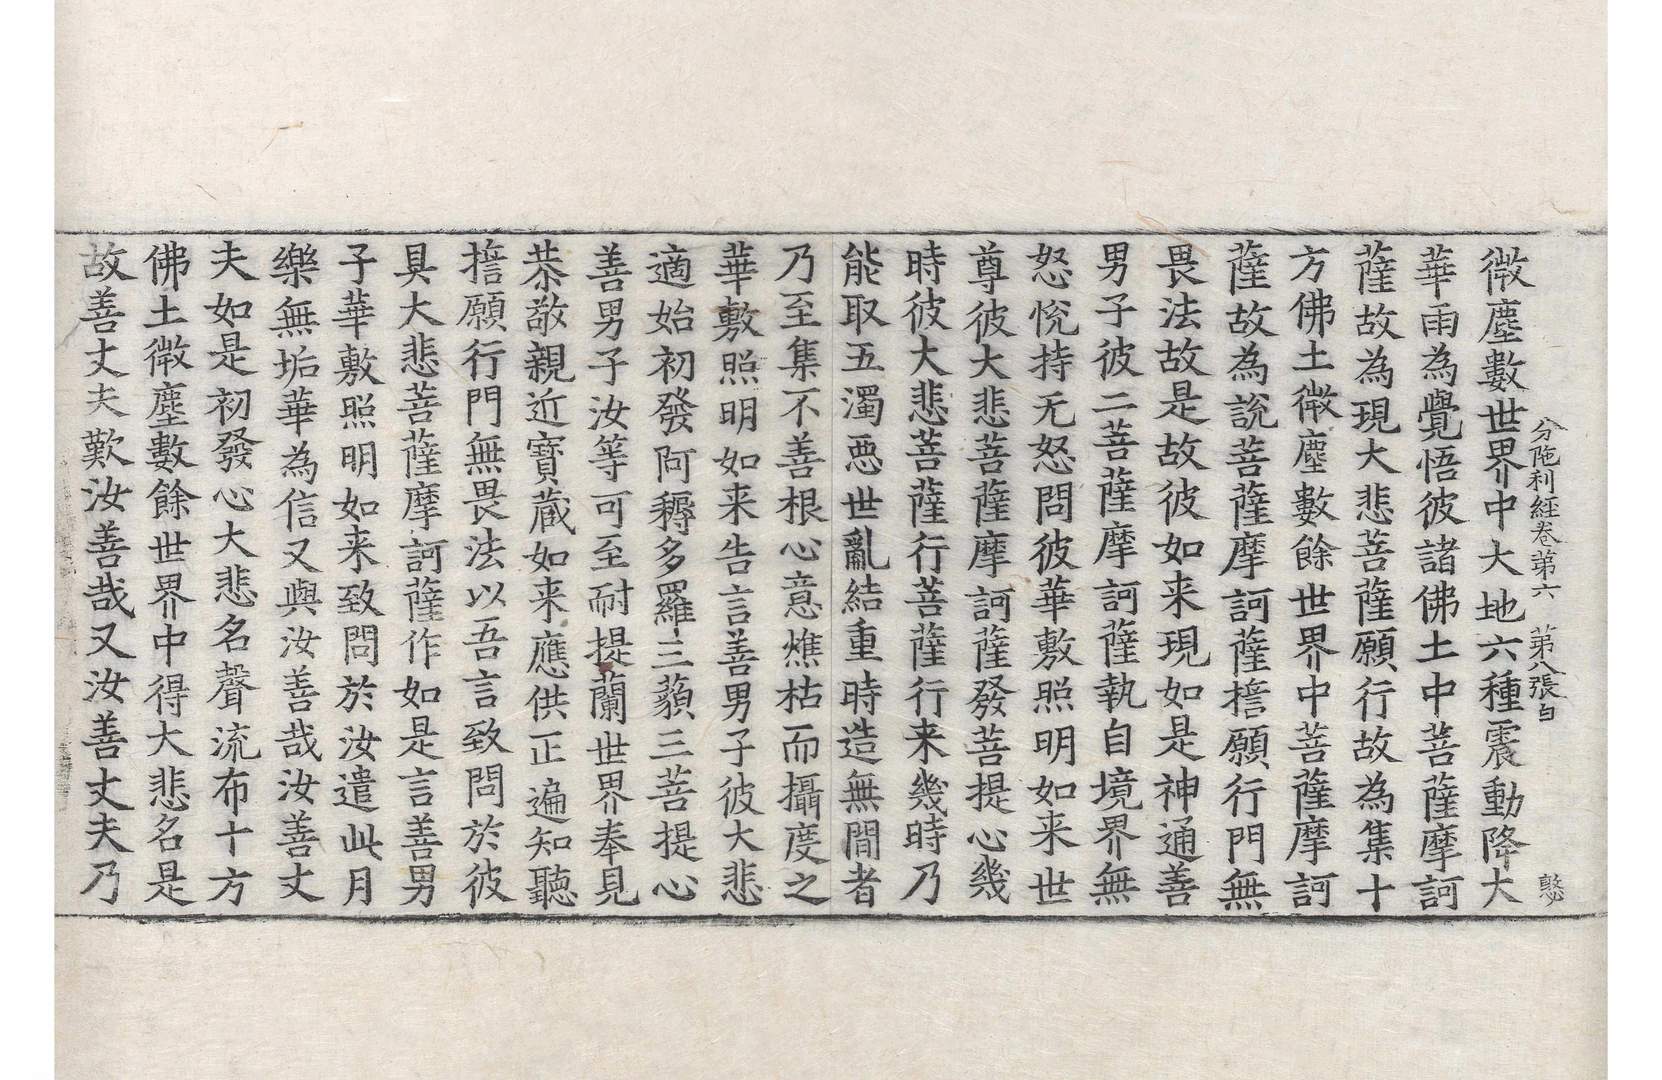 分陁利經卷第六 第八張 白 慜
微塵數世界中大地六種震動降大
華雨為覺悟彼諸佛土中菩薩摩訶
薩故為現大悲菩薩願行故為集十
方佛土微塵數餘世界中菩薩摩訶
薩故為說菩薩摩訶薩擔願行門無
畏法故是故彼如来現如是神通善
男子彼二菩薩摩訶薩執自境界無
怒悅持无怒問彼華敷照明如来世
尊彼大悲菩薩摩訶薩發菩提心幾
時彼大悲菩薩行菩薩行来幾時乃
能取五濁惡世亂結重時造無間者
乃至集不善根心意燋枯而攝度之
華敷照明如来告言善男子彼大悲
適始初發阿耨多羅三藐三菩提心
善男子汝等可至耐提蘭世界奉見
恭敬親近寶藏如来應供正遍知聽
擔願行門無畏法以吾言致問於彼
具大悲菩薩摩訶薩作如是言善男
子華敷照明如来致問於汝遣此月
樂無垢華為信又與汝善哉汝善丈
夫如是初發心大悲名聲流布十方
佛土微塵數餘世界中得大悲名是
故善丈夫歎汝善哉又汝善丈夫乃